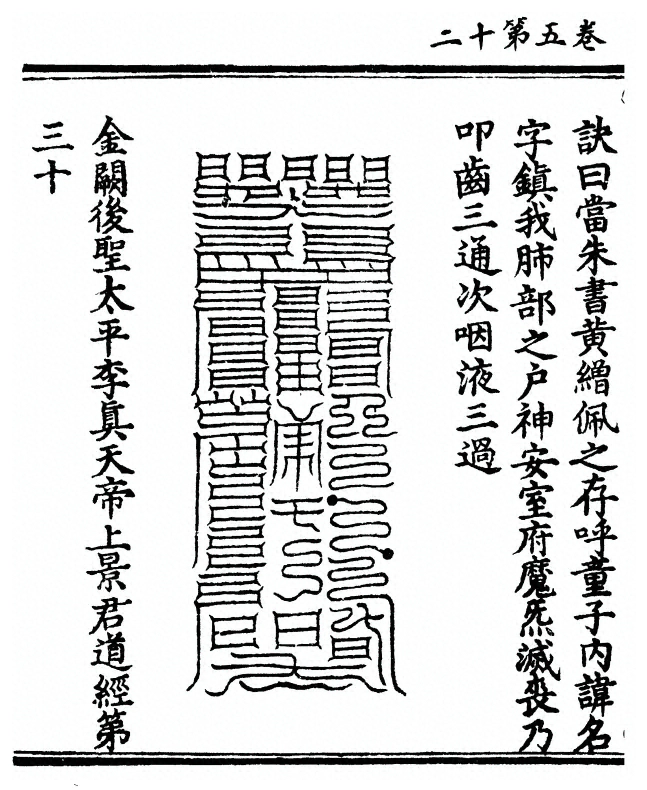 卷五第十二
訣曰當朱書黄繒佩之存呼童子内諱名
字鎮我肺部之户神安室府魔炁滅喪乃
叩齒三通次咽液三過
金闕後聖太平李真天帝上景君道經第
三十